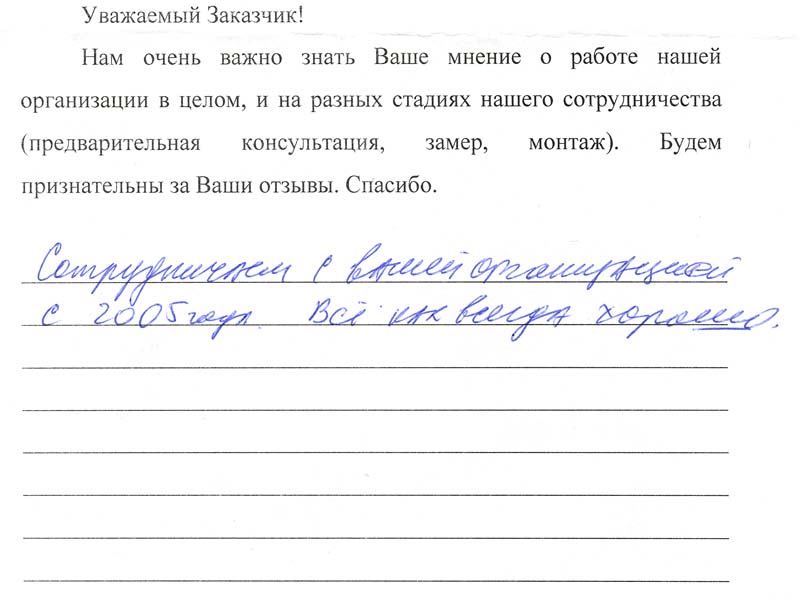 Уважаемый Заказчик!
Нам очень важно знать Ваше мнение о работе нашей
организации в целом, и на разных стадиях нашего сотрудничества
(предварительная консультация, замер, монтаж). Будем
признательны за Ваши отзывы. Спасибо.
Сотрудничаем с вашей организацией
с 2005 года. Всё как всегда хорошо.